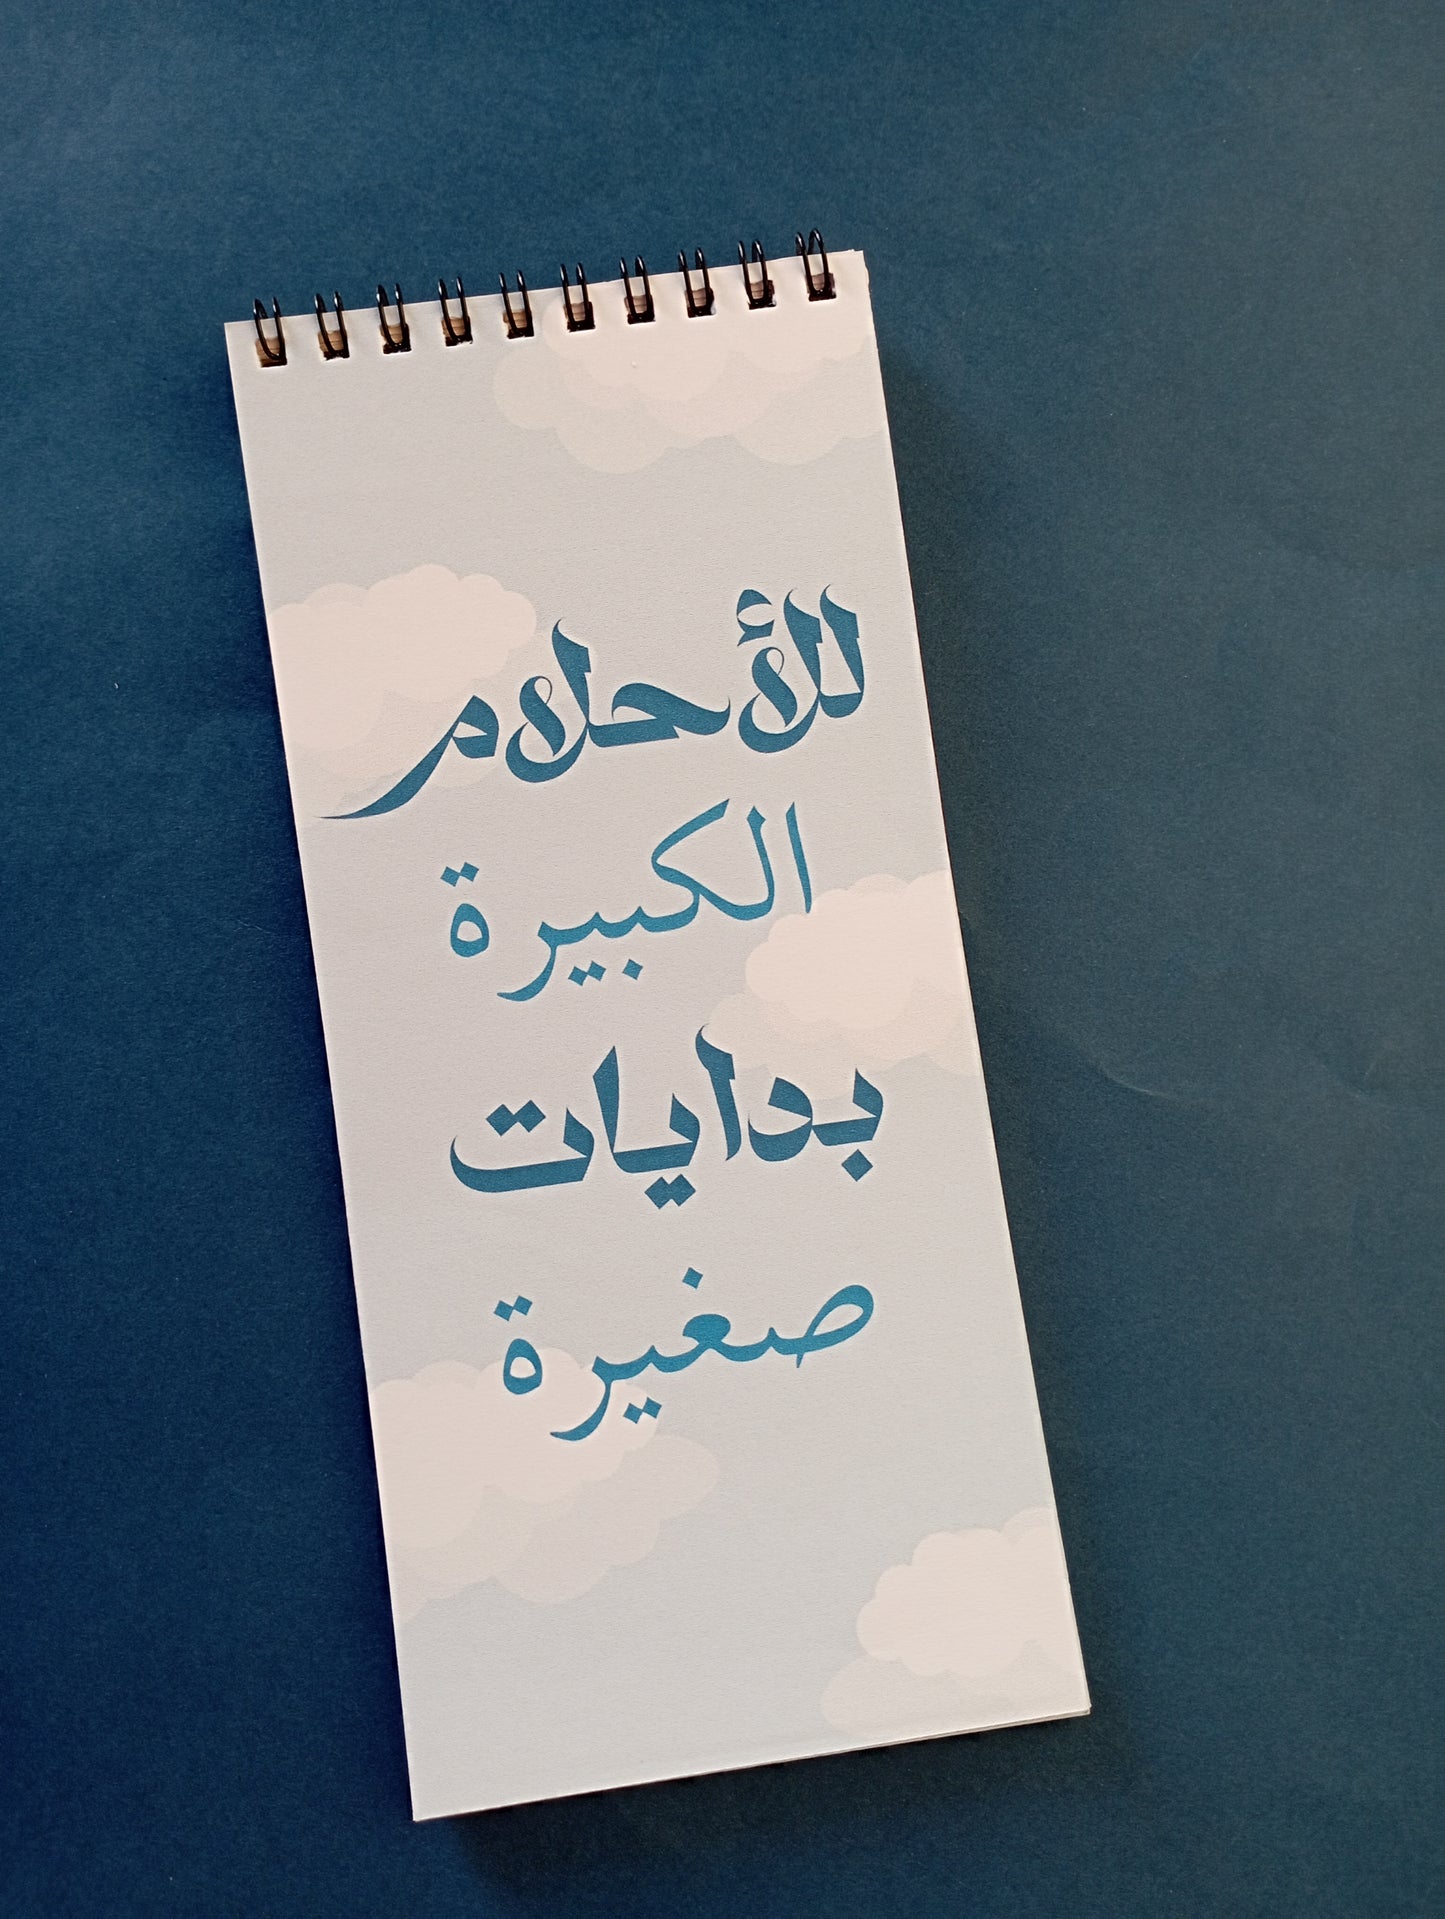 للأحلام
الكبيرة
بدايات
صغيرة